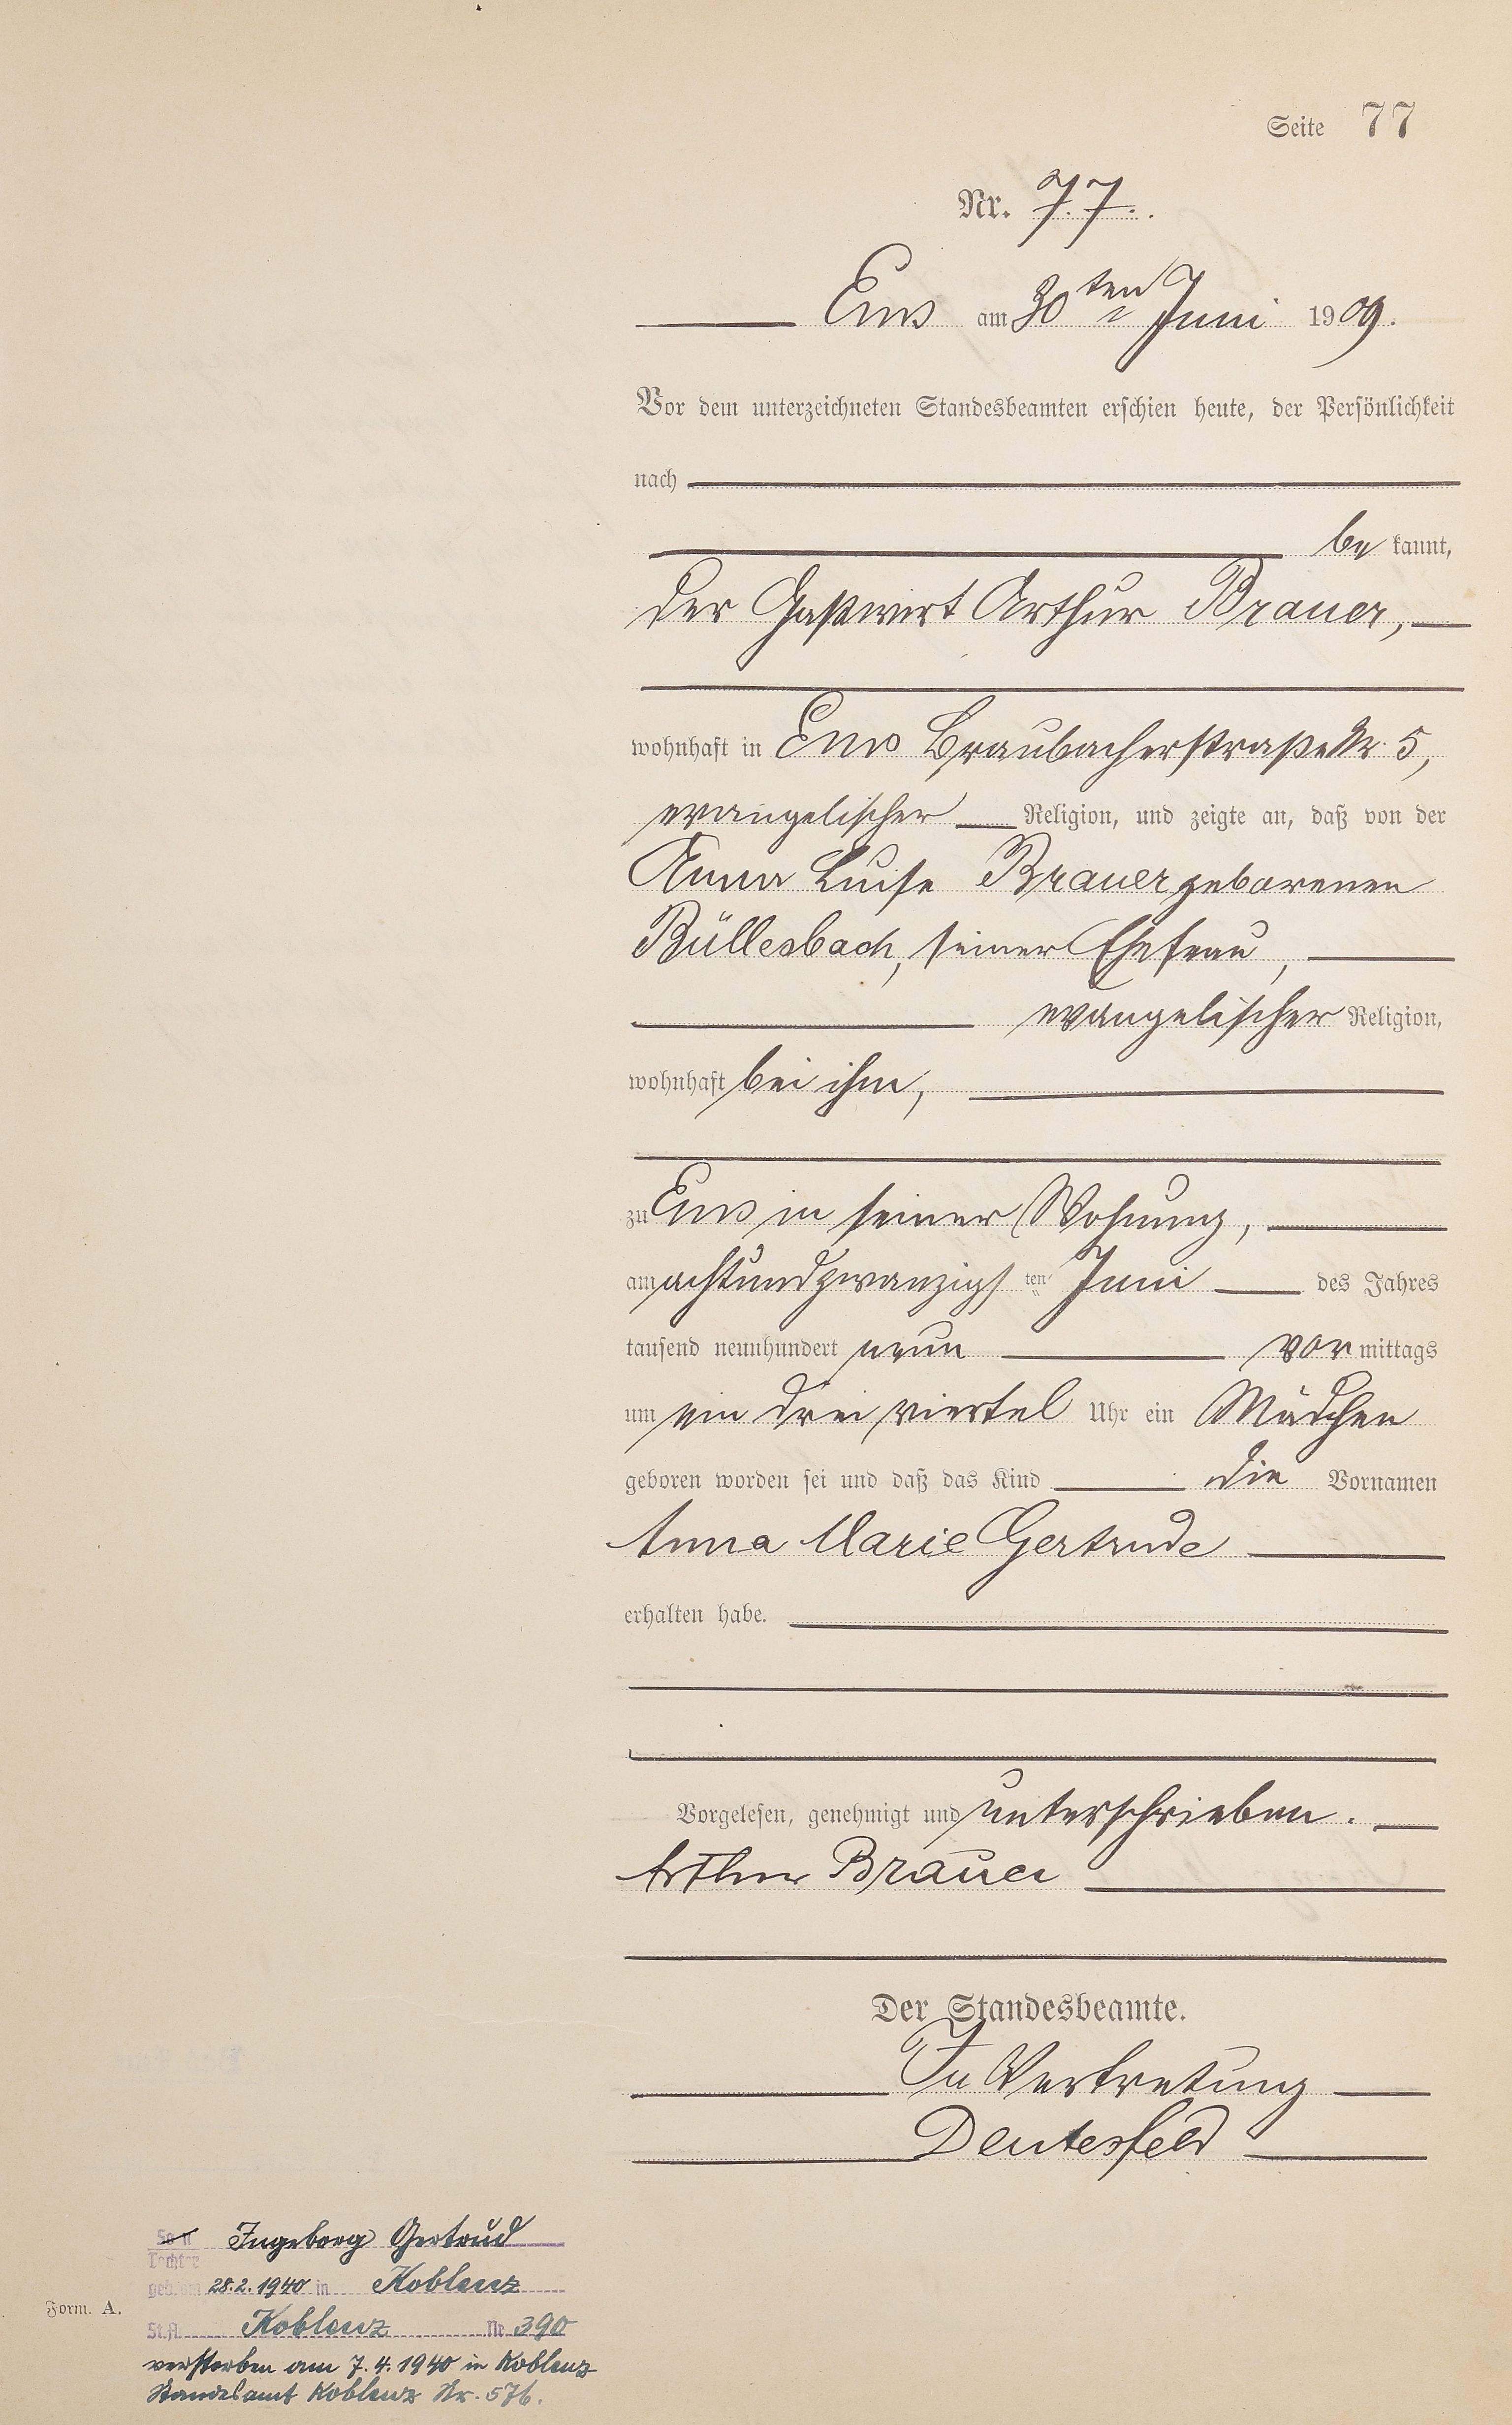 Seite 77
Nr. 77.
Ems am 30ten Juni 1909.
Vor dem unterzeichneten Standesbeamten erschien heute, der Persönlichkeit
nach
bekannt,
der Gastwirt Arthur Brauer,
wohnhaft in Ems Braubacherstraße Nr. 5,
evangelischer Religion, und zeigte an, daß von der
Anna Luise Brauer geborenen
Büllesbach, seiner Ehefrau,
evangelischer Religion,
wohnhaft bei ihm,
zu Ems in seiner Wohnung,
am achtundzwanzigsten Juni des Jahres
tausend neunhundert neun vormittags
um ein drei viertel Uhr ein Mädchen
geboren worden sei und daß das Kind die Vornamen
Anna Marie Gertrude
erhalten habe.
Vorgelesen, genehmigt und unterschrieben.
Arthur Brauer
Der Standesbeamte.
In Vertretung
Deutesfeld
Sohn Ingeborg Gertrud
Tochter
geb. am 28.2.1940 in Koblenz
St.A. Koblenz Nr 390
verstorben am 7.4.1940 in Koblenz
Standesamt Koblenz Nr. 576.
Form. A.